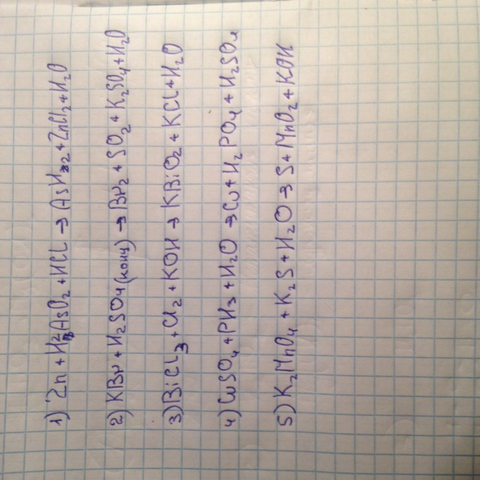 1) Zn + H₃AsO₂ + HCl → AsH₃ + ZnCl₂ + H₂O
2) KBr + H₂SO₄(конц) → Br₂ + SO₂ + K₂SO₄ + H₂O
3) BiCl₃ + Cl₂ + KOH → KBiO₂ + KCl + H₂O
4) CuSO₄ + PH₃ + H₂O → Cu + H₂PO₄ + H₂SO₄
5) K₂MnO₄ + K₂S + H₂O → S + MnO₂ + KOH